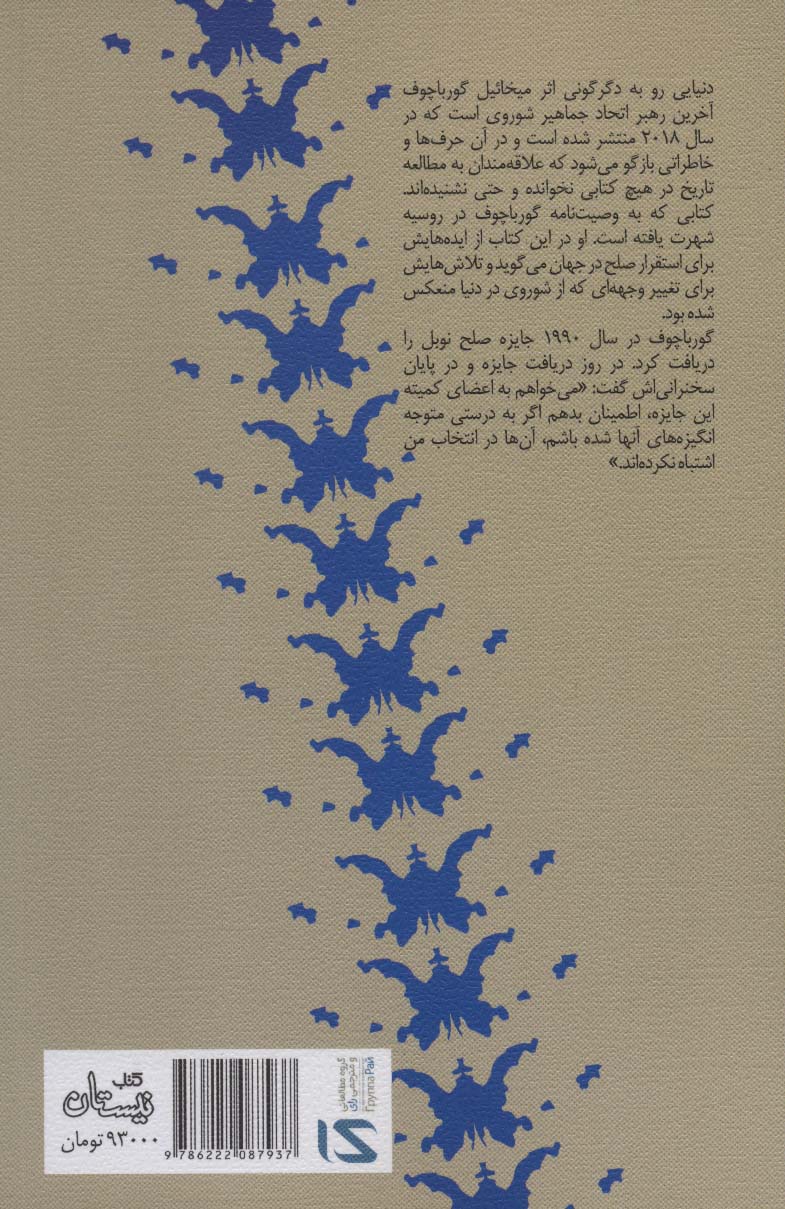 دنیایی رو به دگرگونی اثر میخائیل گورباچوف
آخرین رهبر اتحاد جماهیر شوروی است که در
سال ۲۰۱۸ منتشر شده است و در آن حرف‌ها و
خاطراتی بازگو می‌شود که علاقه‌مندان به مطالعه
تاریخ در هیچ کتابی نخوانده و حتی نشنیده‌اند.
کتابی که به وصیت‌نامه گورباچوف در روسیه
شهرت یافته است. او در این کتاب از ایده‌هایش
برای استقرار صلح در جهان می‌گوید و تلاش‌هایش
برای تغییر وجهه‌ای که از شوروی در دنیا منعکس
شده بود.
گورباچوف در سال ۱۹۹۰ جایزه صلح نوبل را
دریافت کرد. در روز دریافت جایزه و در پایان
سخنرانی‌اش گفت: «می‌خواهم به اعضای کمیته
این جایزه، اطمینان بدهم اگر به درستی متوجه
انگیزه‌های آنها شده باشم، آن‌ها در انتخاب من
اشتباه نکرده‌اند.»
گروه مطالعاتی
و مترجمی رای
Группа Рай
کتاب
نیستان
۹۳۰۰۰ تومان
9 786222 087937